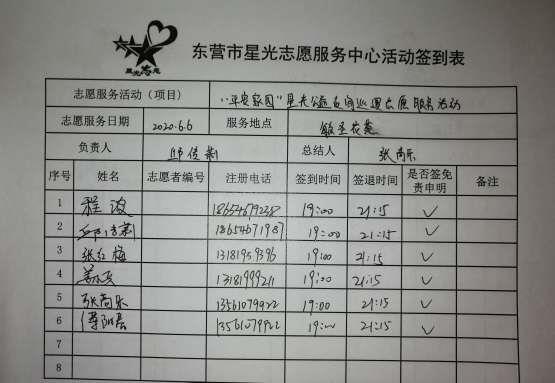 星光志愿
东营市星光志愿服务中心活动签到表
志愿服务活动（项目） "平安家园"星光公益夜间巡逻志愿服务活动
志愿服务日期 2020.6.6 服务地点
负责人 邱传新 总结人 张尚乐
序号 姓名 志愿者编号 注册电话 签到时间 签退时间 是否签免责申明 备注
1 程波 18654679238 19:00 21:15 ✓
2 18654671987 19:00 21:15 ✓
3 张红梅 13181959396 19:00 21:15 ✓
4 13181999211 19:00 21:15 ✓
5 张尚乐 13561079922 19:00 21:15 ✓
6 13561079922 19:00 21:15 ✓
7
8